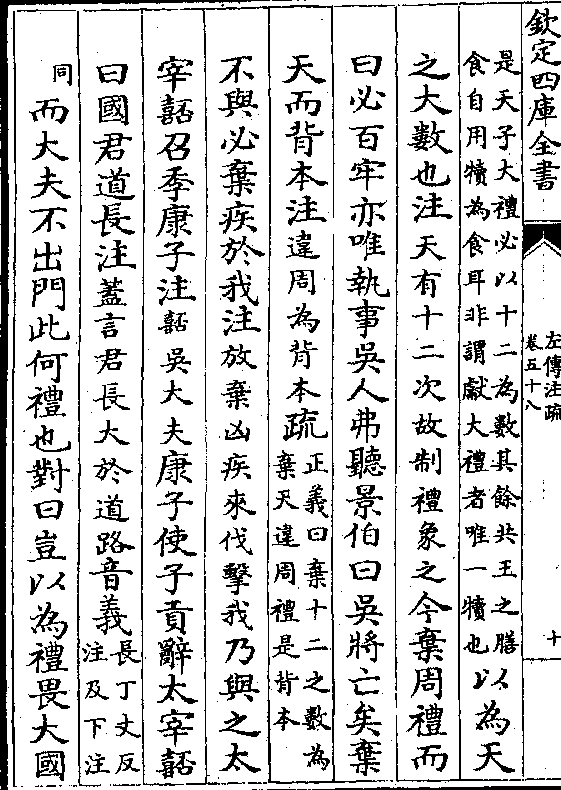 欽定四庫全書
左傳注疏
卷五十八
十
是天子大禮必以十二為數其餘共王之膳
食自用犢為食耳非謂獻大禮者唯一犢也
以為天
之大數也注天有十二次故制禮象之今棄周禮而
曰必百牢亦唯執事吳人弗聽景伯曰吳將亡矣棄
天而背本注違周為背本疏
正義曰棄十二之數為
棄天違周禮是背本
不與必棄疾於我注放棄凶疾來伐擊我乃與之太
宰嚭召季康子注嚭吳大夫康子使子貢辭太宰嚭
曰國君道長注蓋言君長大於道路音義
長丁丈反
注及下注
同
而大夫不出門此何禮也對曰豈以為禮畏大國